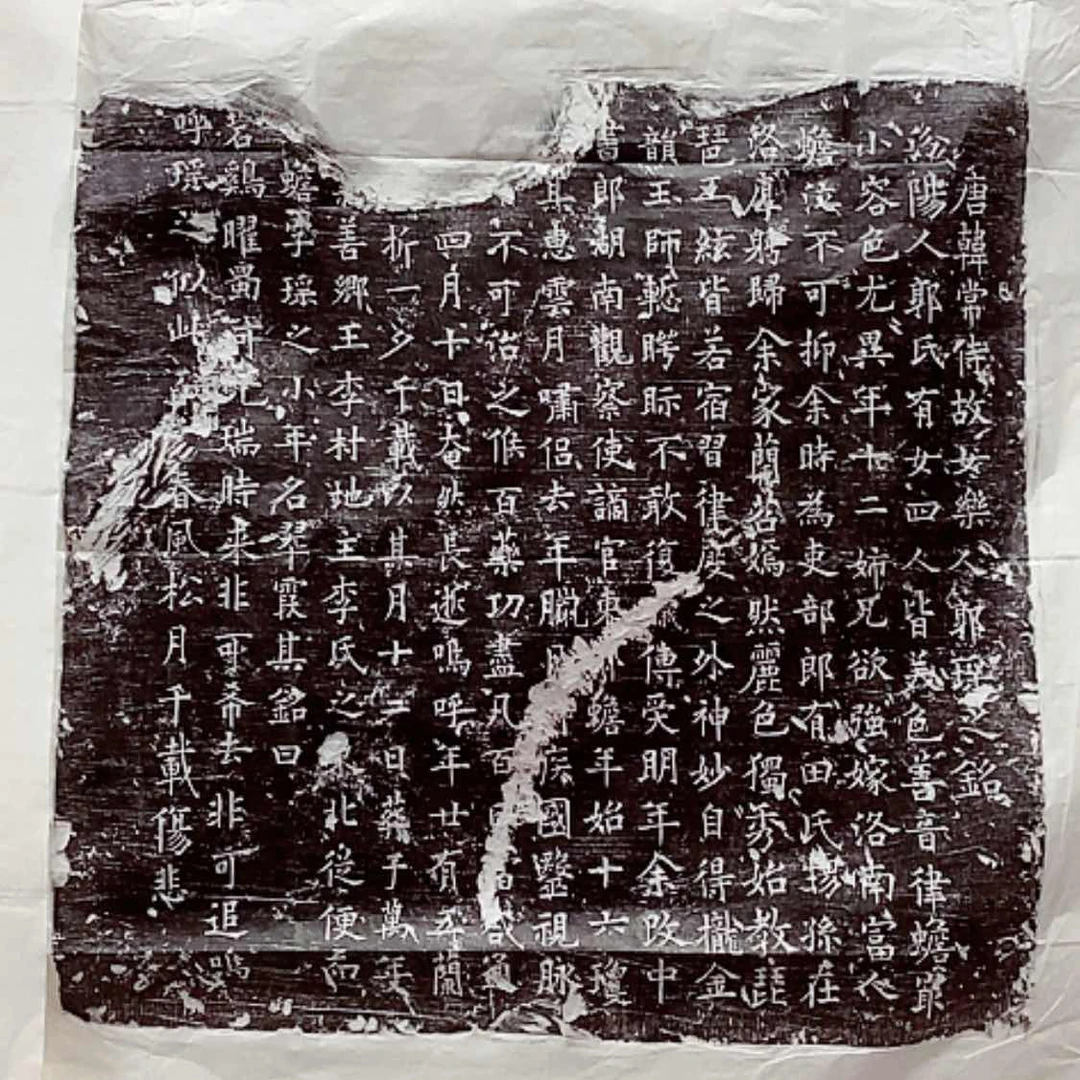 唐韓常侍故女樂人郭瑶之銘
汝陽人郭氏有女四人皆美色善音律蟾最
小容色尤異年十二姉兄欲強嫁洛南富人
蟾泣不可抑余時為吏部郎有田氏揚孫在
洛厚聘歸余家蘭若嫣然麗色獨秀始教琵
琶五絃皆若宿習律度之外神妙自得攏金
韻玉師聽𥇒眎不敢復傳受明年余改中
書郎湖南觀察使謫官東蟾年始十六瓊
其惠雲月嘯侣去年臘疾國毉視脉
不可治之候百藥功盡凡百
四月十日奄然長逝嗚呼年廿有五蘭
折一夕千載以其月十二日葬于萬年
善鄉王李村地主李氏之北從便而
蟾字瑶之小年名翠霞其銘曰
若鷄曜蜀瑞時来非可希去非可追嗚
呼瑶之似此春風松月千載傷悲